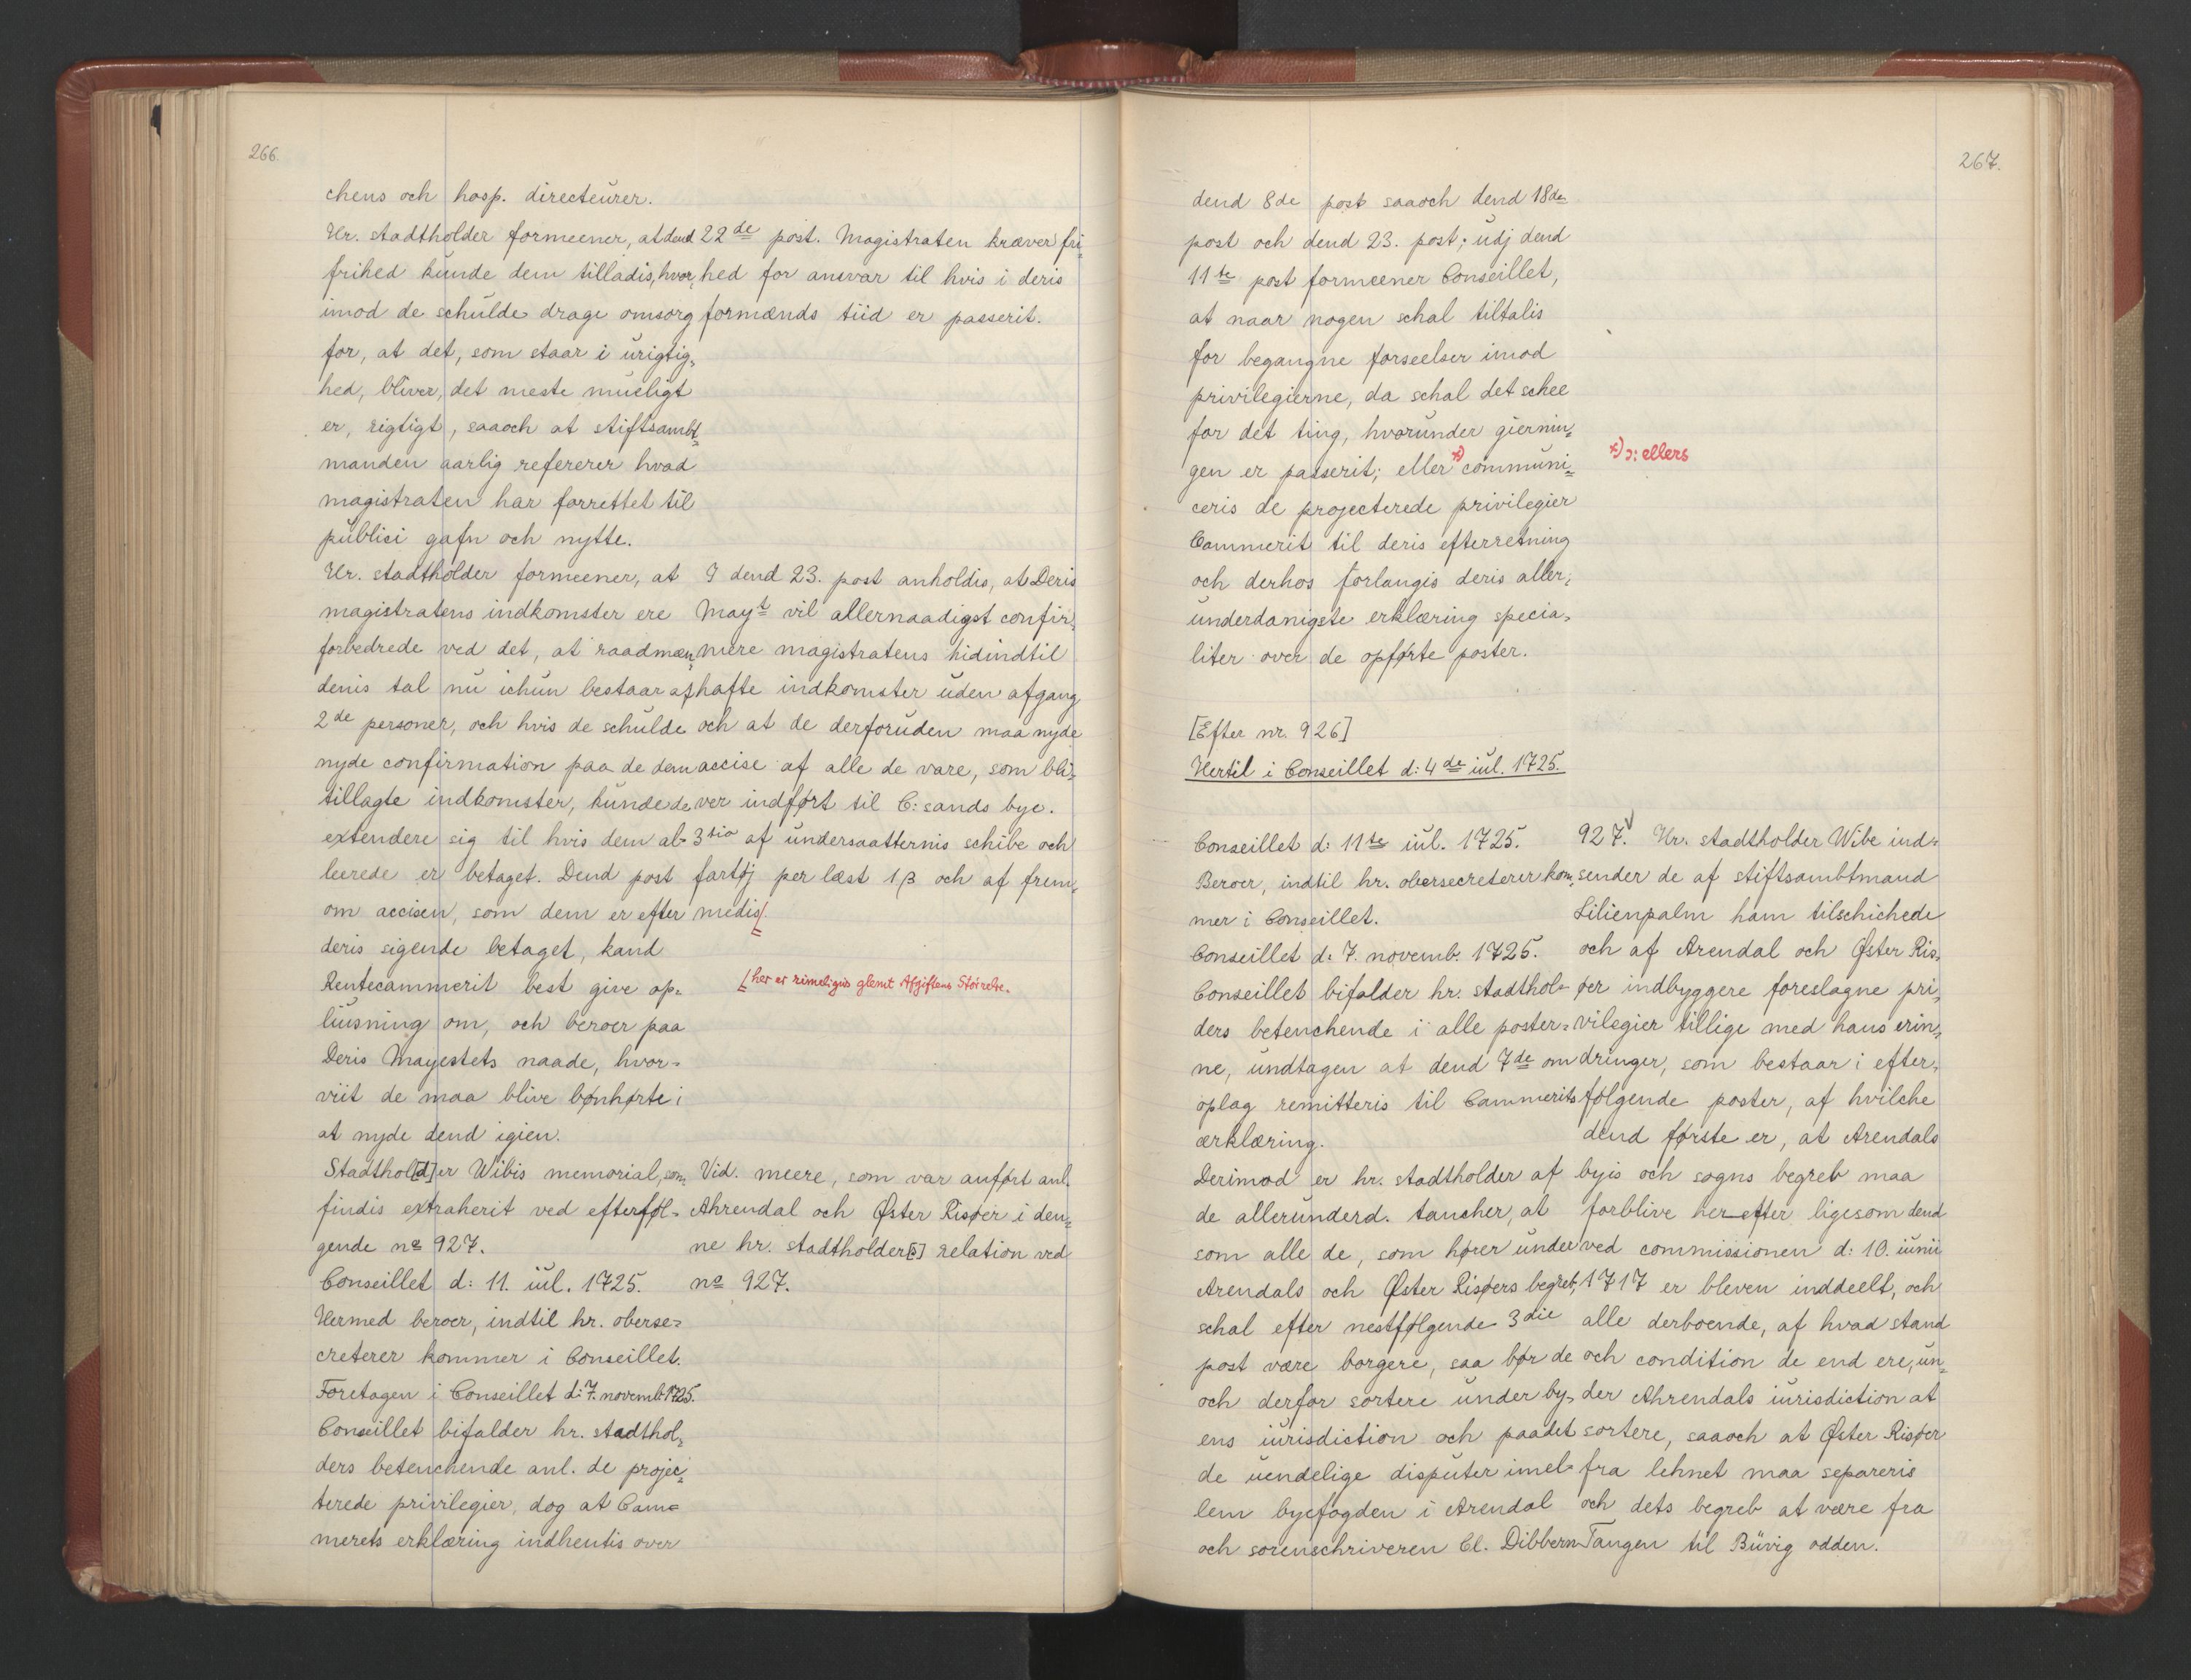 266.
chens och hosp. directeurer.
Hr. stadtholder formeener, at dend
frihed kunde dem tilladis, hvor,
imod de schulde drage omsorg
for, at det, som staar i urigtig,
hed, bliver, det meste mueligt
er, rigtigt, saaoch at stiftsambt,
manden aarlig refererer hvad
magistraten har forrettet til
publici gafn och nytte.
22de post. Magistraten kræver fri,
hed for ansvar til hvis i deris
formænds tiid er passerit.
Hr. stadtholder formeener, at
magistratens indkomster ere
forbedrede ved det, at raadmæn,
denis tal nu ichun bestaar af
2de personer, och hvis de schulde
nyde confirmation paa de dem
tillagte indkomster, kunde de
extendere sig til hvis dem al-
leerede er betaget. Dend post
om accisen, som dem er efter
deris sigende betaget, kand
Rentecammerit best give op-
liusning om, och beroer paa
Deris Mayestets naade, hvor-
viit de maa blive bønhørte i
at nyde dend igien.
I dend 23. post anholdis, at Deris
Mayt vil allernaadigst confir,
mere magistratens hidindtil
hafte indkomster uden afgang
och at de derforuden maa nyde
accise af alle de vare, som bli,
ver indført til C: sands bye.
3tio af undersaatternis schibe och
fartøj per læst 1 β och af frem,
medis/.
/ her er rimeligvis glemt Afgiftens Størrelse.
Stadthol[d]er Wibis memorial, som
findis extraherit ved efterføl-
gende no 927.
Conseillet d: 11. iul. 1725.
Hermed beroer, indtil hr. oberse-
creterer kommer i Conseillet.
Foretagen i Conseillet d: 7. novemb. 1725.
Conseillet bifalder hr. stadthol,
ders betenchende anl. de projec,
terede privilegier, dog at Cam-
merets erklæring indhentis over
Vid. meere, som var anført anl.
Ahrendal och Øster Risøer i den,
ne hr. stadtholder[s] relation ved
no 927.
267.
dend 8de post saaoch dend 18de
post och dend 23. post; udj dend
11te post formeener Conseillet,
at naar nogen schal tiltalis
for begangne forseelser imod
privilegierne, da schal det schee
for det ting, hvorunder giernin,
gen er passerit; eller *) communi,
ceris de projecterede privilegier
Cammerit til deris efterretning
och derhos forlangis deris aller,
underdanigste erklæring specia,
liter over de opførte poster.
*) ɔ: ellers
[Efter nr. 926]
Hertil i Conseillet d: 4de iul. 1725.
Conseillet d: 11te iul. 1725.
Beroer, indtil hr. obersecreterer kom,
mer i Conseillet.
Conseillet d: 7. novemb. 1725.
Conseillet bifalder hr. stadthol-
ders betenchende i alle poster-
ne, undtagen at dend 7de om
oplag remitteris til Cammerits
erklæring.
Derimod er hr. stadtholder af
de allerunderd. tancher, at
som alle de, som hører under
Arendals och Øster Risøers begreb,
schal efter nestfølgende 3die
post være borgere, saa bør de
och derfor sortere under by,
ens iurisdiction och paa det
de uendelige disputer imel-
lem byefogden i Arendal
och sorenschriveren Cl. Dibbern
927. Hr. stadtholder Wibe ind-
sender de af stiftsambtmand
Lilienpalm ham tilschichede
och af Arendal och Øster Ris,
øer indbyggere foreslagne pri,
vilegier tillige med hans erin,
dringer, som bestaar i efter,
følgende poster, af hvilche
dend første er, at Arendals
byis och sogns begreb maa
forblive herefter ligesom dend
ved commissionen d: 10. iunii
1717 er bleven inddeelt, och
alle derboende, af hvad stand
och condition de end ere, un,
der Ahrendals iurisdiction at
sortere, saaoch at Øster Risøer
fra lehnet maa separeris
och dets begreb at være fra
Tangen til Büvig odden.